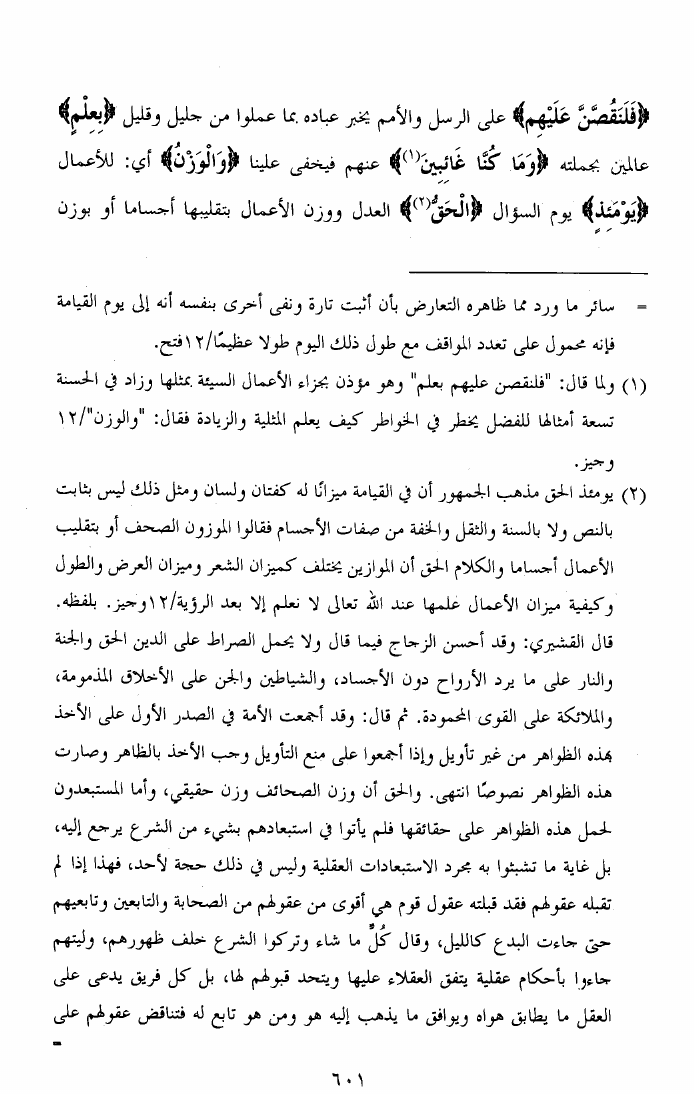 ﴿فَلَنَقُصَّنَّ عَلَيْهِم﴾ على الرسل والأمم يخبر عباده بما عملوا من جليل وقليل ﴿بِعِلْمٍ﴾
عالمين بجملته ﴿وَمَا كُنَّا غَائِبِينَ(١)﴾ عنهم فيخفى علينا ﴿وَالْوَزْنُ﴾ أي: للأعمال
﴿يَوْمَئِذٍ﴾ يوم السؤال ﴿الْحَقُّ(٢)﴾ العدل ووزن الأعمال بتقليبها أجساما أو بوزن
= سائر ما ورد مما ظاهره التعارض بأن أثبت تارة ونفى أخرى بنفسه أنه إلى يوم القيامة
فإنه محمول على تعدد المواقف مع طول ذلك اليوم طولا عظيمًا/١٢فتح.
(١) ولما قال: "فلنقصن عليهم بعلم" وهو مؤذن بجزاء الأعمال السيئة بمثلها وزاد في الحسنة
تسعة أمثالها للفضل يخطر في الخواطر كيف يعلم المثلية والزيادة فقال: "والوزن"/١٢
وجيز.
(٢) يومئذ الحق مذهب الجمهور أن في القيامة ميزانًا له كفتان ولسان ومثل ذلك ليس بثابت
بالنص ولا بالسنة والثقل والخفة من صفات الأجسام فقالوا الموزون الصحف أو بتقليب
الأعمال أجساما والكلام الحق أن الموازين يختلف كميزان الشعر وميزان العرض والطول
وكيفية ميزان الأعمال علمها عند الله تعالى لا نعلم إلا بعد الرؤية/١٢وجيز. بلفظه.
قال القشيري: وقد أحسن الزجاج فيما قال ولا يحمل الصراط على الدين الحق والجنة
والنار على ما يرد الأرواح دون الأجساد، والشياطين والجن على الأخلاق المذمومة،
والملائكة على القوى المحمودة. ثم قال: وقد أجمعت الأمة في الصدر الأول على الأخذ
بهذه الظواهر من غير تأويل وإذا أجمعوا على منع التأويل وجب الأخذ بالظاهر وصارت
هذه الظواهر نصوصًا انتهى. والحق أن وزن الصحائف وزن حقيقي، وأما المستبعدون
لحمل هذه الظواهر على حقائقها فلم يأتوا في استبعادهم بشيء من الشرع يرجع إليه،
بل غاية ما تشبثوا به مجرد الاستبعادات العقلية وليس في ذلك حجة لأحد، فهذا إذا لم
تقبله عقولهم فقد قبلته عقول قوم هي أقوى من عقولهم من الصحابة والتابعين وتابعيهم
حتى جاءت البدع كالليل، وقال كُلٌّ ما شاء وتركوا الشرع خلف ظهورهم، وليتهم
جاءوا بأحكام عقلية يتفق العقلاء عليها ويتحد قبولهم لها، بل كل فريق يدعى على
العقل ما يطابق هواه ويوافق ما يذهب إليه هو ومن هو تابع له فتناقض عقولهم على
=
٦٠١